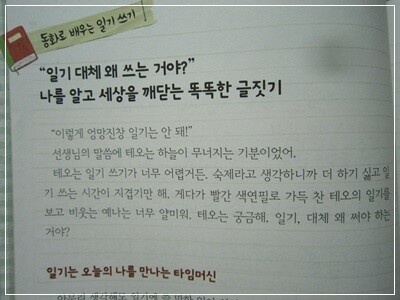 동화로 배우는 일기 쓰기
“일기 대체 왜 쓰는 거야?”
나를 알고 세상을 깨닫는 똑똑한 글짓기
“이렇게 엉망진창 일기는 안 돼!”
선생님의 말씀에 테오는 하늘이 무너지는 기분이었어.
테오는 일기 쓰기가 너무 어렵거든. 숙제라고 생각하니까 더 하기 싫고 일
기 쓰는 시간이 지겹기만 해. 게다가 빨간 색연필로 가득 찬 테오의 일기를
보고 비웃는 예나는 너무 얄미워. 테오는 궁금해. 일기, 대체 왜 써야 하는
거야?
일기는 오늘의 나를 만나는 타임머신
아무리 생각해도 일기에